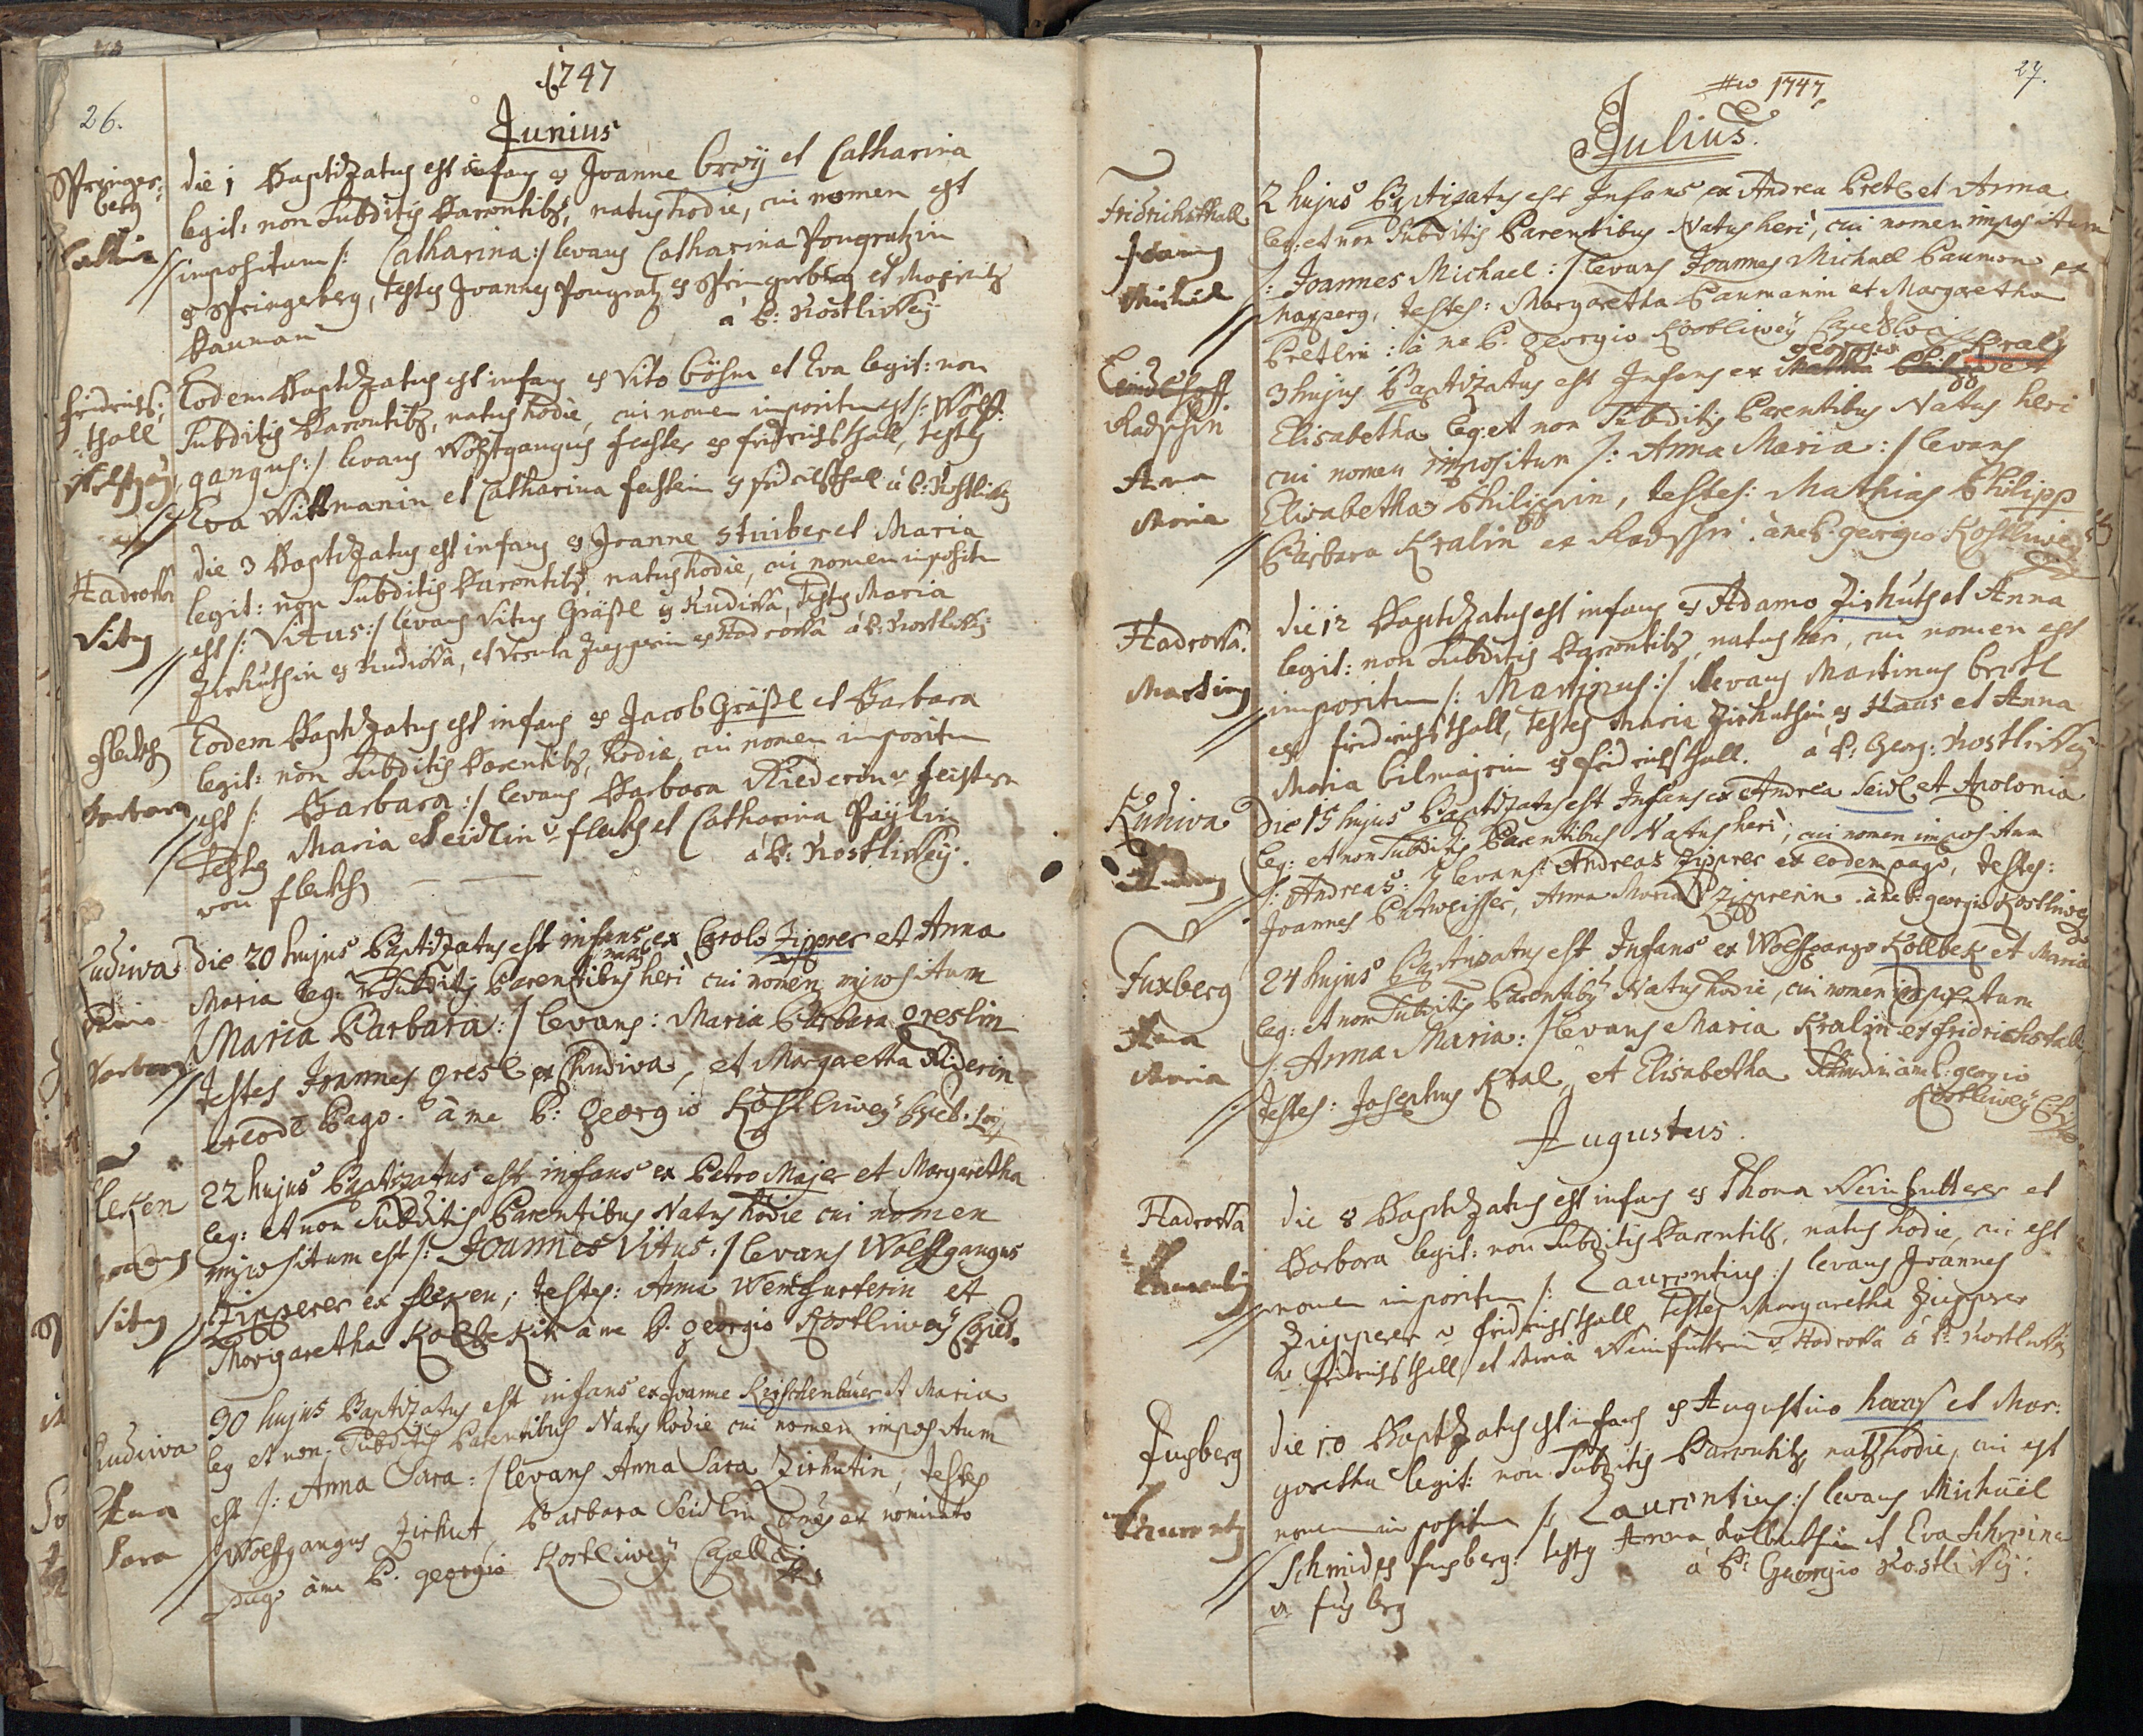 26.
1747
Junius
Springer:
berg
die 1 Baptizatus est infans ex Joanne brey et Catharina
legit: non Subditis Parentibs, natus hodie, cui nomen est
impositum /: Catharina :/ levans Catharina Pongratzin
ex Springerberg, testes Joannes Pongratz ex Springerberg et
Bauman
à P: Kostliwey
Fridrichs:
thall
Wolfgang
Eodem Baptizatus est infans ex Vito böhm et Eva legit: non
Subditis Parentibs, natus hodie, cui nomen impositum est /: Wolf:
gangus :/ levans Wolfgangus ex fridrichsthall, testes
Eva Wittmanin et Catharina ex fridrichsthall à P: Kostliwey
Hadrowa
Vitus
die 3 Baptizatus est infans ex Joanne Stuiber et Maria
legit: non Subditis Parentibs, natus hodie, cui nomen impositu
est /: Vitus :/ levans Vitus Gräßl ex Kudiwa, testes Maria
Zirhutin ex Kudiwa, et Ursula Zipperin ex Hadrowa à P: Kostliwey
Flecken
Barbara
Eodem Baptizatus est infans ex Jacob Gräßl et Barbara
legit: non Subditis Parentibs, hodie, cui nomen impositu
est /: Barbara :/ levans Barbara Riederin v
testes Maria Seidlin v flecken et Catharina
von flecken
à P: Kostliwey.
Kudiwa
Maria
Barbara
die 20 hujus Baptizatus est infans ex Carolo Zipprer et Anna
natus
Maria leg: n Subditis Parentibus heri cui nomen impositum
/: Maria Barbara :/ levans: Maria Barbara greslin
testes Joannes gresl ex Chudiwa, et Margaretha Riderin
ex eodē Pago. à me P: Georgio Kostliwey
Flecken
Joannes
Vitus
22 hujus Baptizatus est infans ex Petro Majer et Margaretha
leg: et non Subditis Parentibus Natus hodie cui nomen
impositum est /: Joannes Vitus :/ levans Wolffgangus
Zipperer ex flecken; testes: Anna Weinfurterin et
Margaretha Kolbekin à me P. georgio Kostliwey
Kudiwa
Anna
Sara
30 hujus Baptizatus est infans ex Joanne Kerschenbauer et Maria
leg et non Subditis Parentibus Natus hodie cui nomen impositum
est /: Anna Sara :/ levans Anna Sara Zirhutin, testes
Wolffgangus Zirhut, Barbara Seidlin ex nominato
pago à me P. georgio Kostliwey
27.
1747
Julius.
Fridrichsthall
Joannes
Michael
2 hujus Baptizatus est Infans ex Andrea Pretl et Anna
leg: et non Subditis Parentibus Natus heri, cui nomen impositum
/: Joannes Michael :/ levans Joannes Michael Pauman ex
Maxperg, testes: Margaretha Paumanin et Margaretha
Pretlin: à me P. georgio Kostliwey
Radschin
Anna
Maria
georgio Kral
3 hujus Baptizatus est Infans ex et
Elisabetha leg: et non Subditis Parentibus Natus heri
cui nomen impositum /: Anna Maria :/ levans
Elisabetha Philippin, testes: Mathias Philipp
Barbara Kralin ex Radschin. à me P. georgio Kostliwey
Hadrowa.
Martinus
die 12 Baptizatus est infans ex Adamo Zirhut et Anna
legit: non Subditis Parentibs, natus heri, cui nomen est
impositum /: Martinus :/ levans Martinus bretl
ex fridrichsthall, testes Maria Zirhutin ex Haas et Anna
Maria bilmajrin ex fridrichsthall. à P: Georg: Kostliwey
Kudiwa
Andreas
die 15 hujus Baptizatus est Infans ex Andrea Seidl et Apolonia
leg: et non Subditis Parentibus Natus heri, cui nomen impositum
/: Andreas :/ levans: Andreas Zipprer ex eodem pago, testes:
Joannes, Anna Maria Zipprerin. à me P. georgio Kostliwey
Fuxberg
Anna
Maria
24 hujus Baptizatus est Infans ex Wolffgango Kollbek et Maria
leg: et non Subditis Parentibus Natus hodie, cui nomen impositum
/: Anna Maria :/ levans Maria Kralin ex fridrichsthall
testes: Josephus Kral, et Elisabetha à me P: georgio
Kostliwey
Augustus.
Hadrowa
Laurentius
die 8 Baptizatus est infans ex Thoma Weinfurtterer et
Barbara legit: non Subditis Parentibs, natus hodie, cui est
nomen impositum /: Laurentius :/ levans Joannes
Zipperer v fridrichsthall testes Margaretha Zipprer
v fridrichsthall et Maria Weinfurtterin v Hadrowa à P: Kostliwey
Fuxberg
Laurentius
die 10 Baptizatus est infans ex Augustino haas et Mar:
garetha legit: non Subditis Parentibs, natus hodie, cui est
nomen impositum /: Laurentius :/ levans Michäel
Schmid ex fuxberg: testes Anna et Eva
v fuxberg
à P: Georgio Kostliwey: